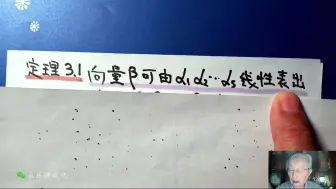 定理 3.1 向量β可由α₁α₂…αₛ线性表出